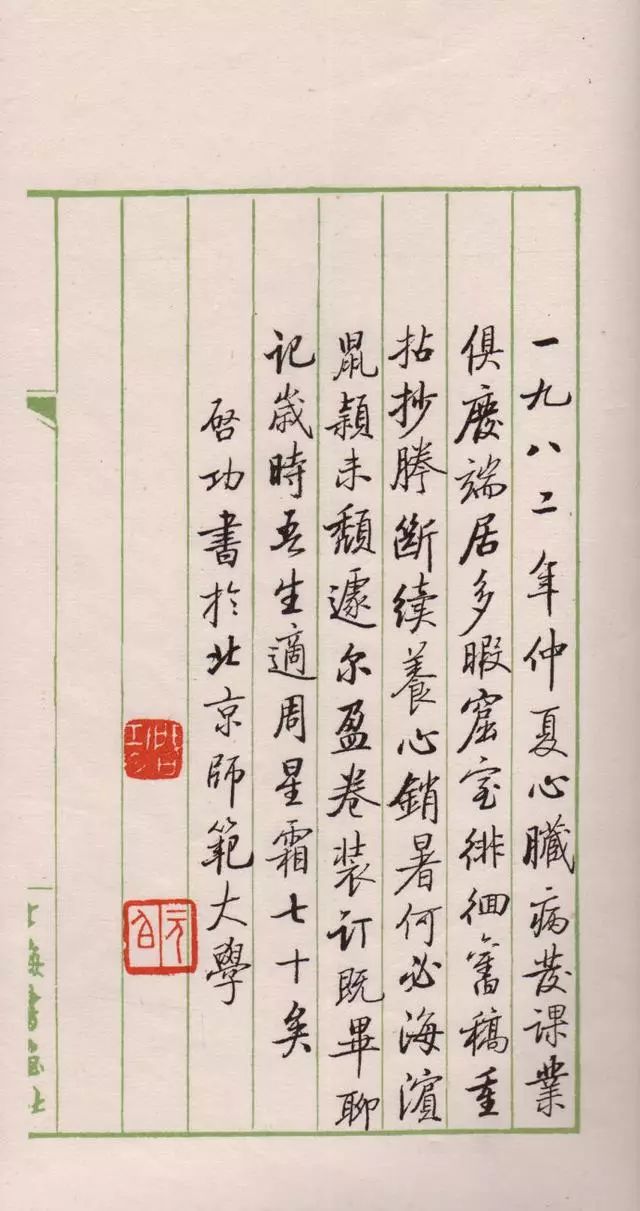 一九八二年仲夏心臟病發課業
俱廢端居多暇窟室徘徊舊稿重
拈抄謄斷續養心銷暑何必海濱
鼠穎未頹遽尔盈卷装订既畢聊
记歲時吾生適周星霜七十矣
啓功書於北京師範大學
啟功
元白
上海書畫社